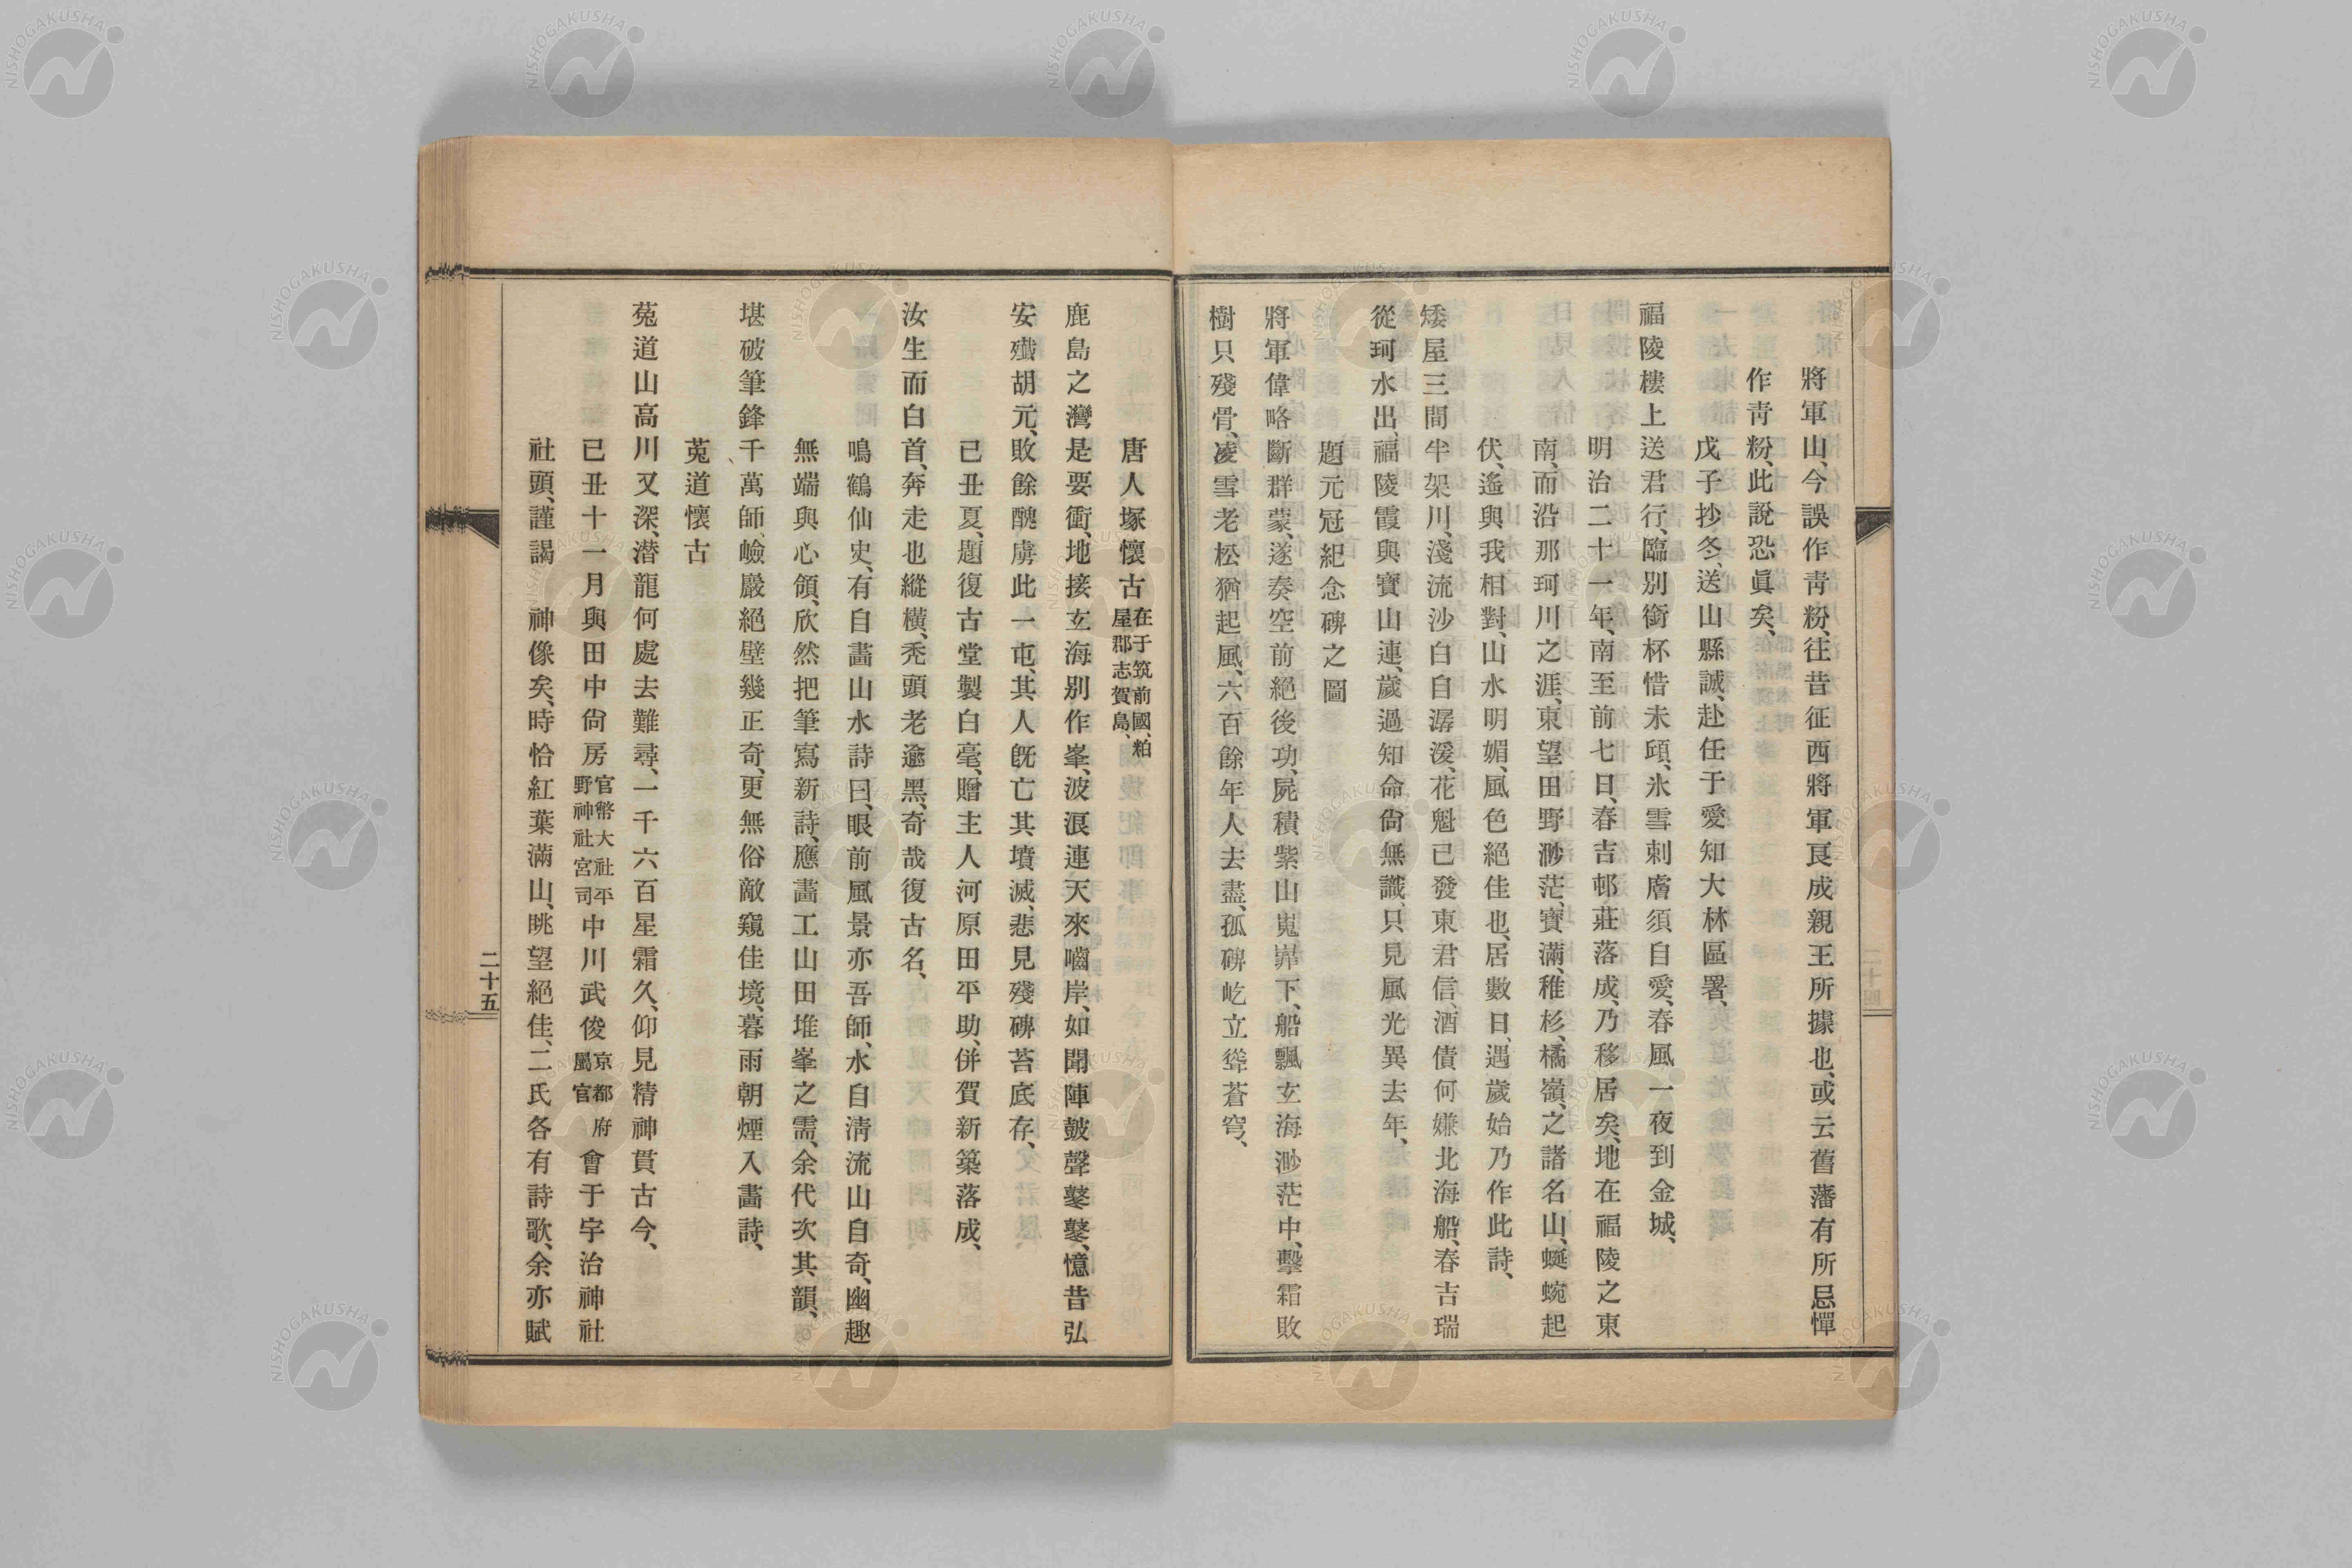 將軍山、今誤作靑粉、往昔征西將軍良成親王所據也、或云舊藩有所忌憚
作靑粉、此說恐眞矣、
戊子抄冬、送山縣誠、赴任于愛知大林區署、
福陵樓上送君行、臨別銜杯惜未頎、氷雪刺膚須自愛、春風一夜到金城、
明治二十一年、南至前七日、春吉邨、莊落成、乃移居矣、地在福陵之東
南、而沿那珂川之涯、東望田野渺茫、寶滿、稚杉、橘嶺、之諸名山、蜒蜿起
伏、遙與我相對、山水明媚、風色絕佳也、居數日、遇歲始乃作此詩、
矮屋三間半架川、淺流沙白自潺湲、花魁已發東君信、酒債何嫌北海船、春吉瑞
從珂水出、福陵霞與寶山連、歲過知命尙無識、只見風光異去年、
題元冠紀念碑之圖
將軍偉略斷群蒙、遂奏空前絕後功、屍積紫山嵬崋下、船飄玄海渺茫中、擊霜敗
樹只殘骨、凌雪老松猶起風、六百餘年人去盡、孤碑屹立聳蒼穹、
唐人塚懷古 在于筑前國、粕屋郡志賀島、
鹿島之灣是要衝、地接玄海別作峯、波浪連天來嚙岸、如聞陣皷聲鼕鼕、憶昔弘
安殲胡元、敗餘醜虜此一屯、其人旣亡其墳滅、悲見殘碑苔底存、
己丑夏、題復古堂製白毫、贈主人河原田平助、併賀新築落成、
汝生而白首、奔走也縱橫、禿頭老逾黑、奇哉復古名、
鳴鶴仙史、有自畵山水詩曰、眼前風景亦吾師、水自淸流山自奇、幽趣
無端與心領、欣然把筆寫新詩、應畵工山田堆峯之需、余代次其韻、
堪破筆鋒千萬師、嶮巖絕壁幾正奇、更無俗敵窺佳境、暮雨朝煙入畵詩、
菟道懷古
菟道山高川又深、潜龍何處去難尋、一千六百星霜久、仰見精神貫古今、
己丑十一月與田中尙房官幣大社平野神社宮司中川武俊京都府屬官會于宇治神社
社頭、謹謁　神像矣、時恰紅葉滿山、眺望絕佳、二氏各有詩歌、余亦賦
二十五